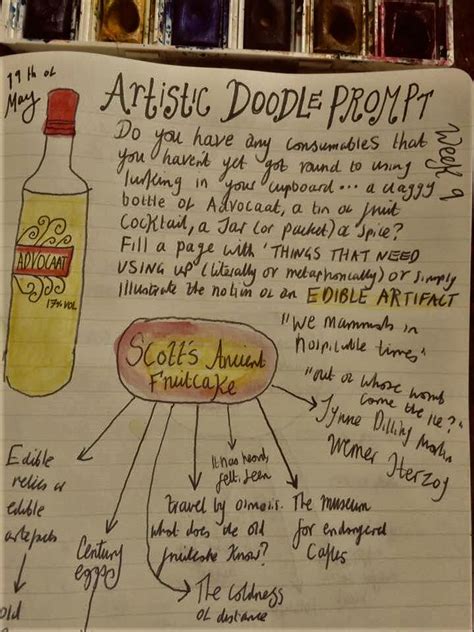 19th of
May
Artistic DOODLE PROMPT
Week 9
Do you have any consumables that
you havent yet got round to using
lurking in your cupboard... a claggy
bottle of Advocaat, a tin of fruit
cocktail, a jar (or packet) of spice?
Fill a page with 'THINGS THAT NEED
USING UP' (literally or metaphorically) or simply
illustrate the notion of an EDIBLE ARTIFACT
ADVOCAAT
17% VOL
"We mammals in
hospitable times"
"out of whose womb
come the ice?"
Jynne Dilling Martin
Werner Herzog
Scott's Ancient
Fruitcake
Edible
relics of
edible
artefacts
Century
eggs
It has heard,
felt, seen
travel by osmosis.
what does the old
fruitcake know?
The museum
for endangered
Cakes
The coldness
of distance
old